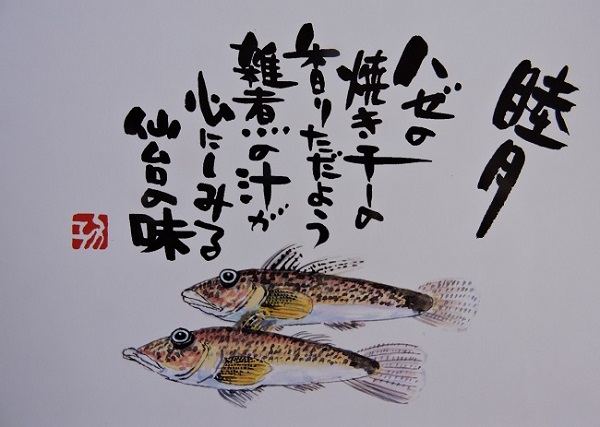 睦月
ハゼの
焼き干しの
香りただよう
雑煮の汁が
心にしみる
仙台の味